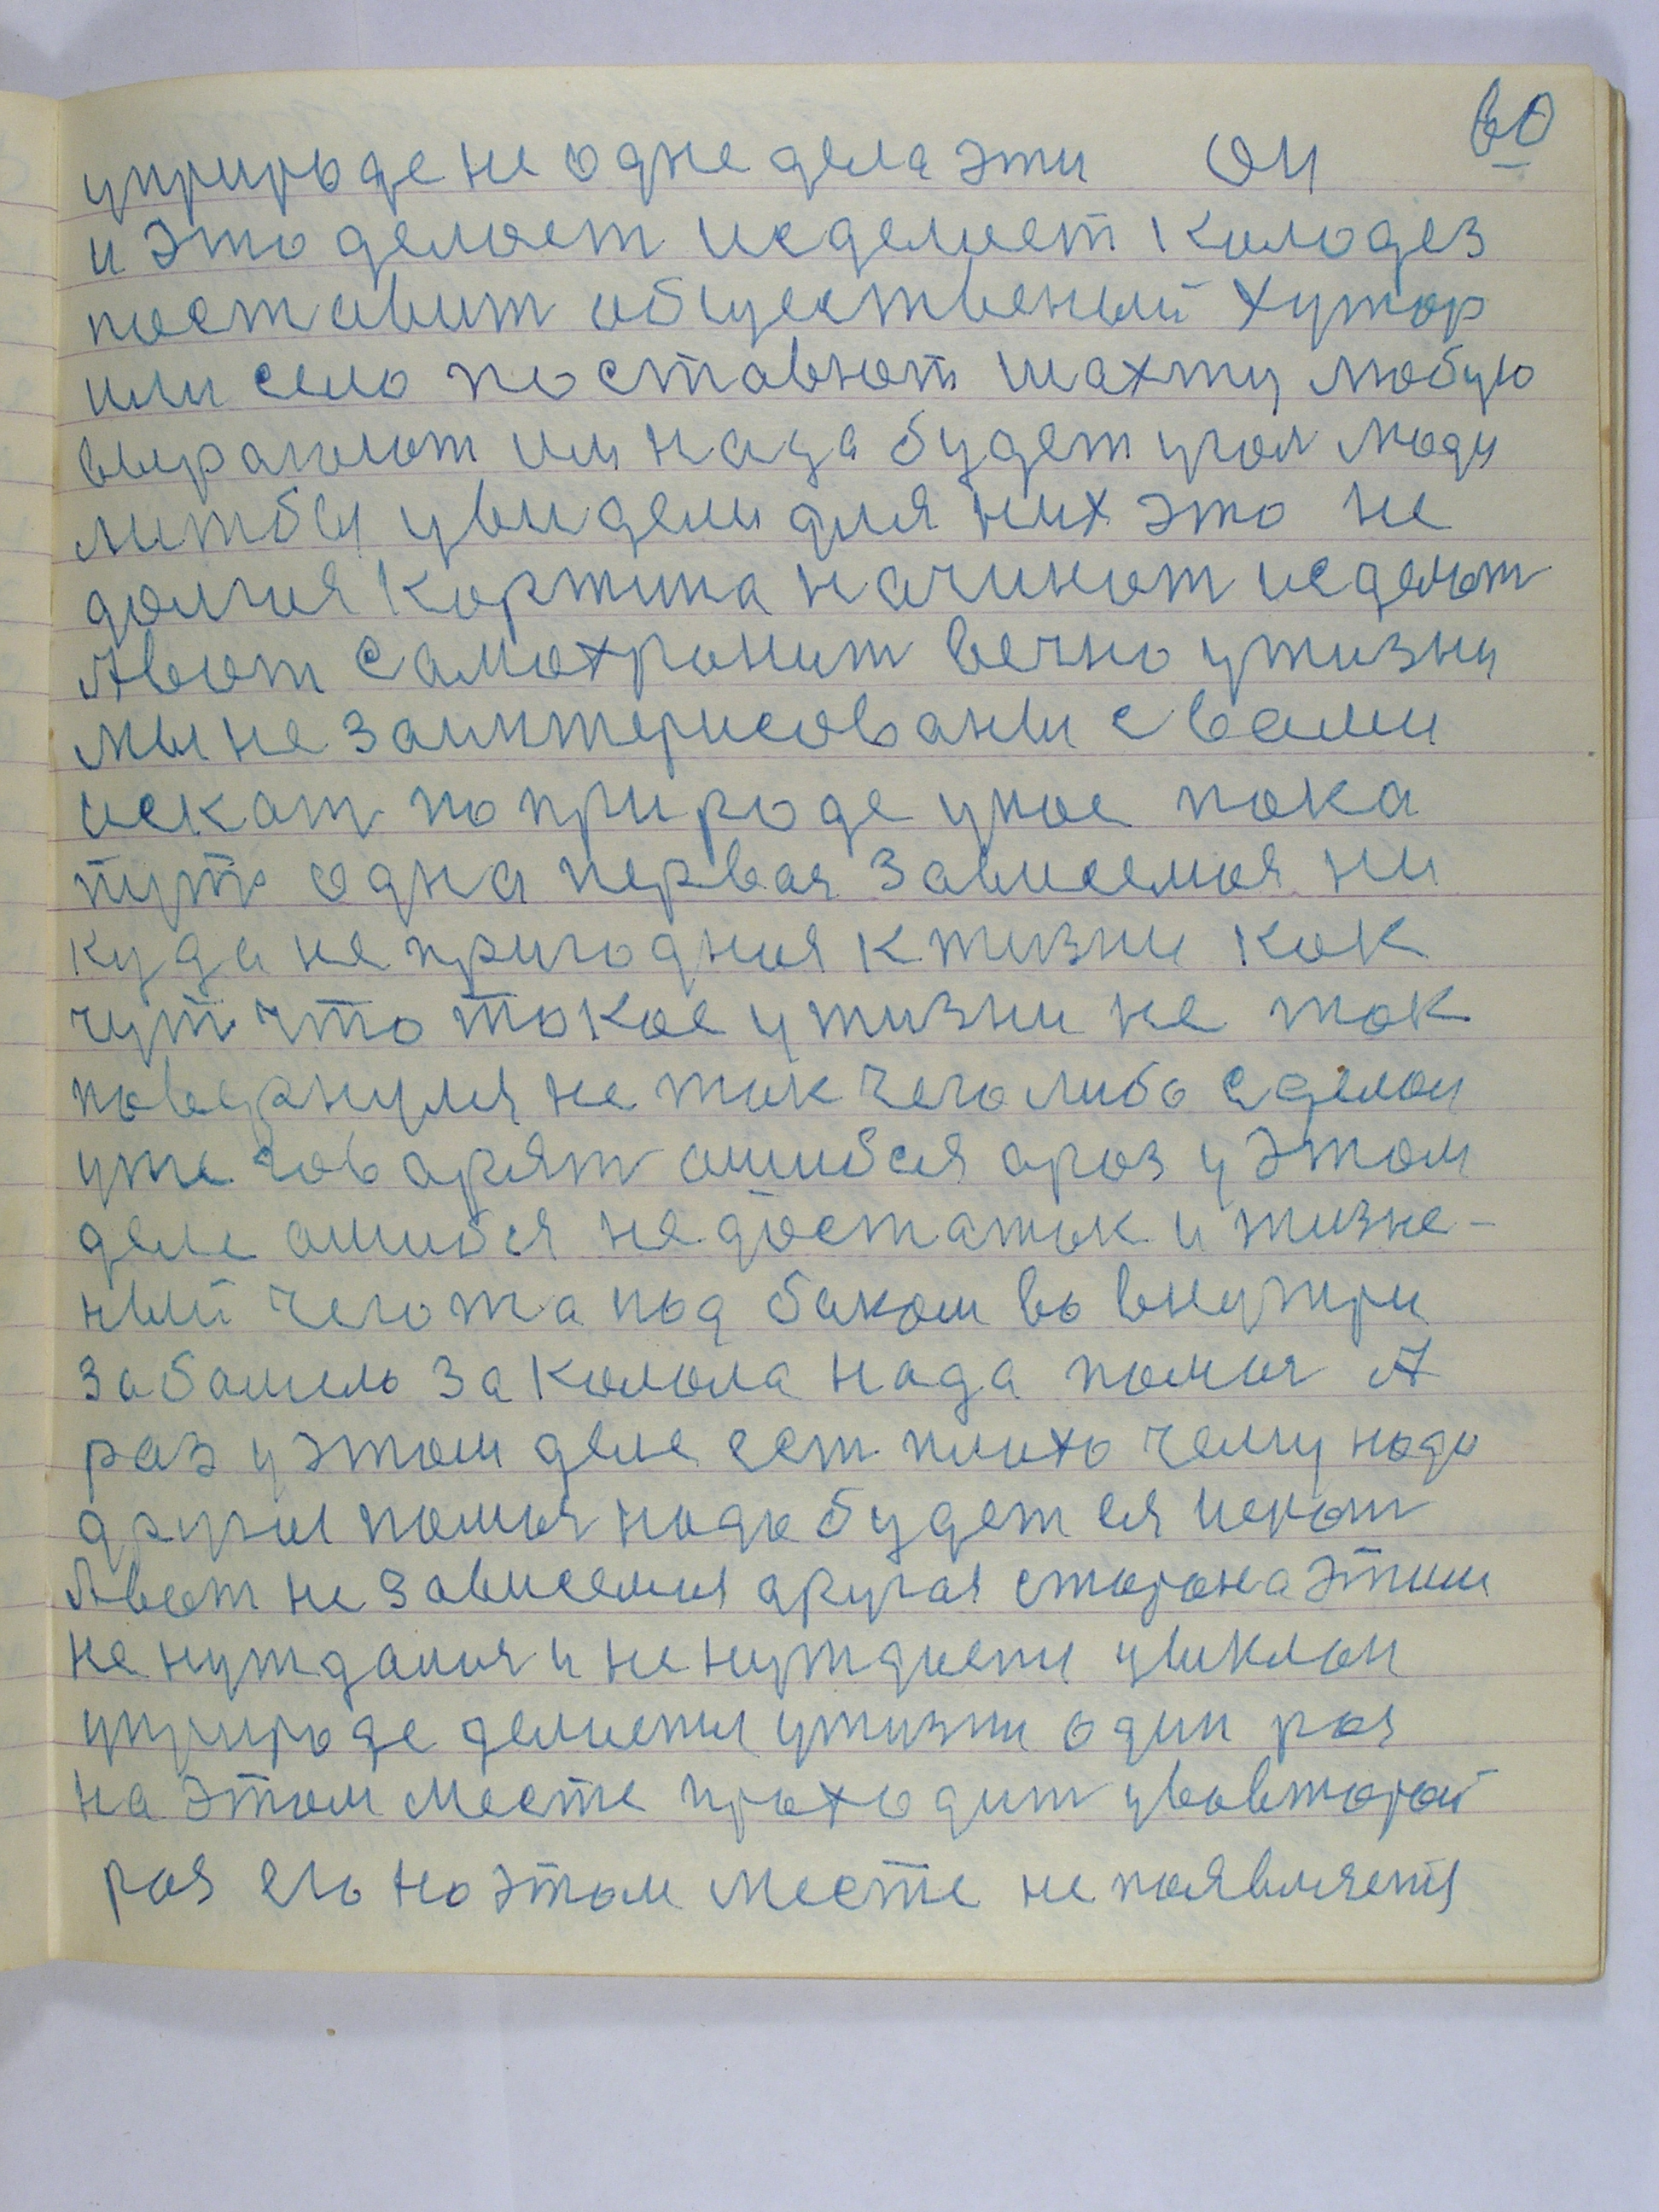 60
уприроде не одне дела эти Он
и это делает исделает колодез
поставит общественый хутор
или село поставют шахту любую
выроют им нада будет угол люди
лишбы увидели для них это не
долгия картина начинют исделют
Авот самохранит вечно ужизни
мы не заинтерисованы с вами
искат по природе уное пока
тут одна первая зависемая ни
куда не пригодная к жизни как
чут что токое ужизни не так
повернулся не так чего либо сделал
уже говарят ошибся араз уэтом
деле ошибся не достаток и жизне-
ный чегота под баком во внутри
заболело заколола нада помоч А
раз уэтом деле ест плохо чему надо
другы помоч надо будет ея искат
Авот не зависемая другая сторона этим
не нуждался и не нуждаетц
уприроде делаетц ужизни один раз
на этом месте проходит увовторой
раз его на этом месте не появляетц